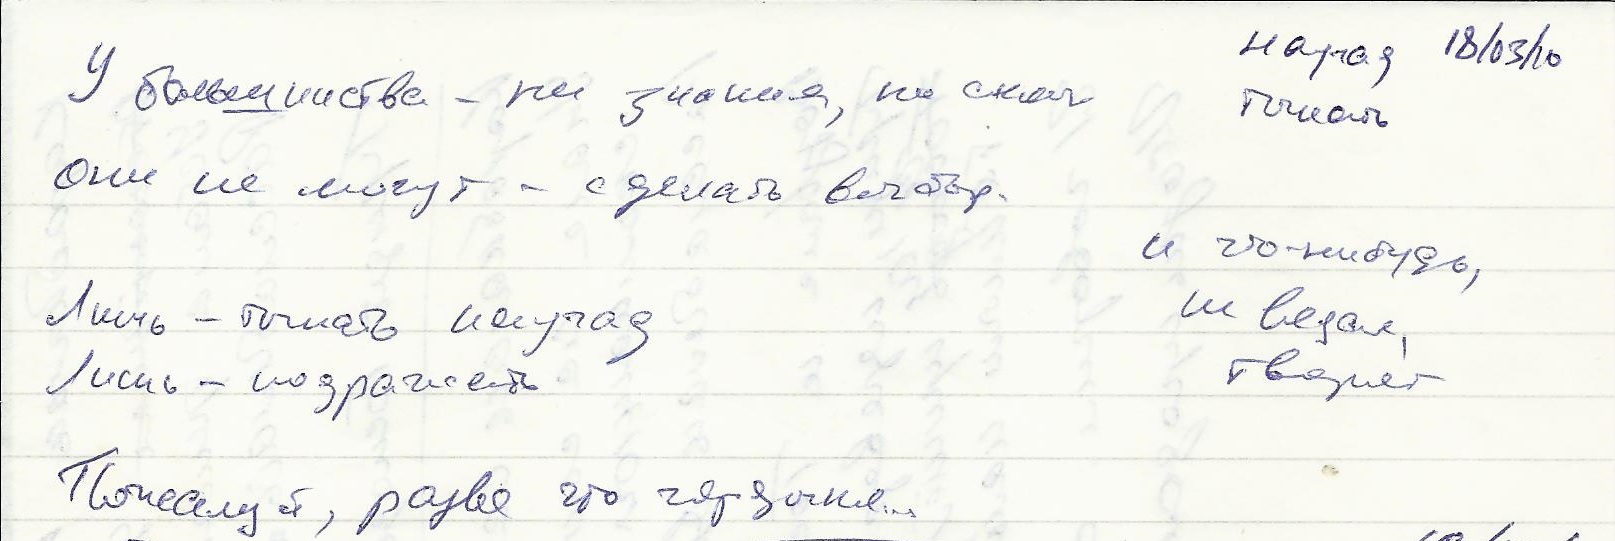 У большинства – ни знания, ни сил
Они не могут – сделать выбор.
Лишь – тыкать наугад
Лишь – подражать
Пожалуй, разве что
наугад 18/03/10
тыкать
и что-нибудь,
не ведая,
творят